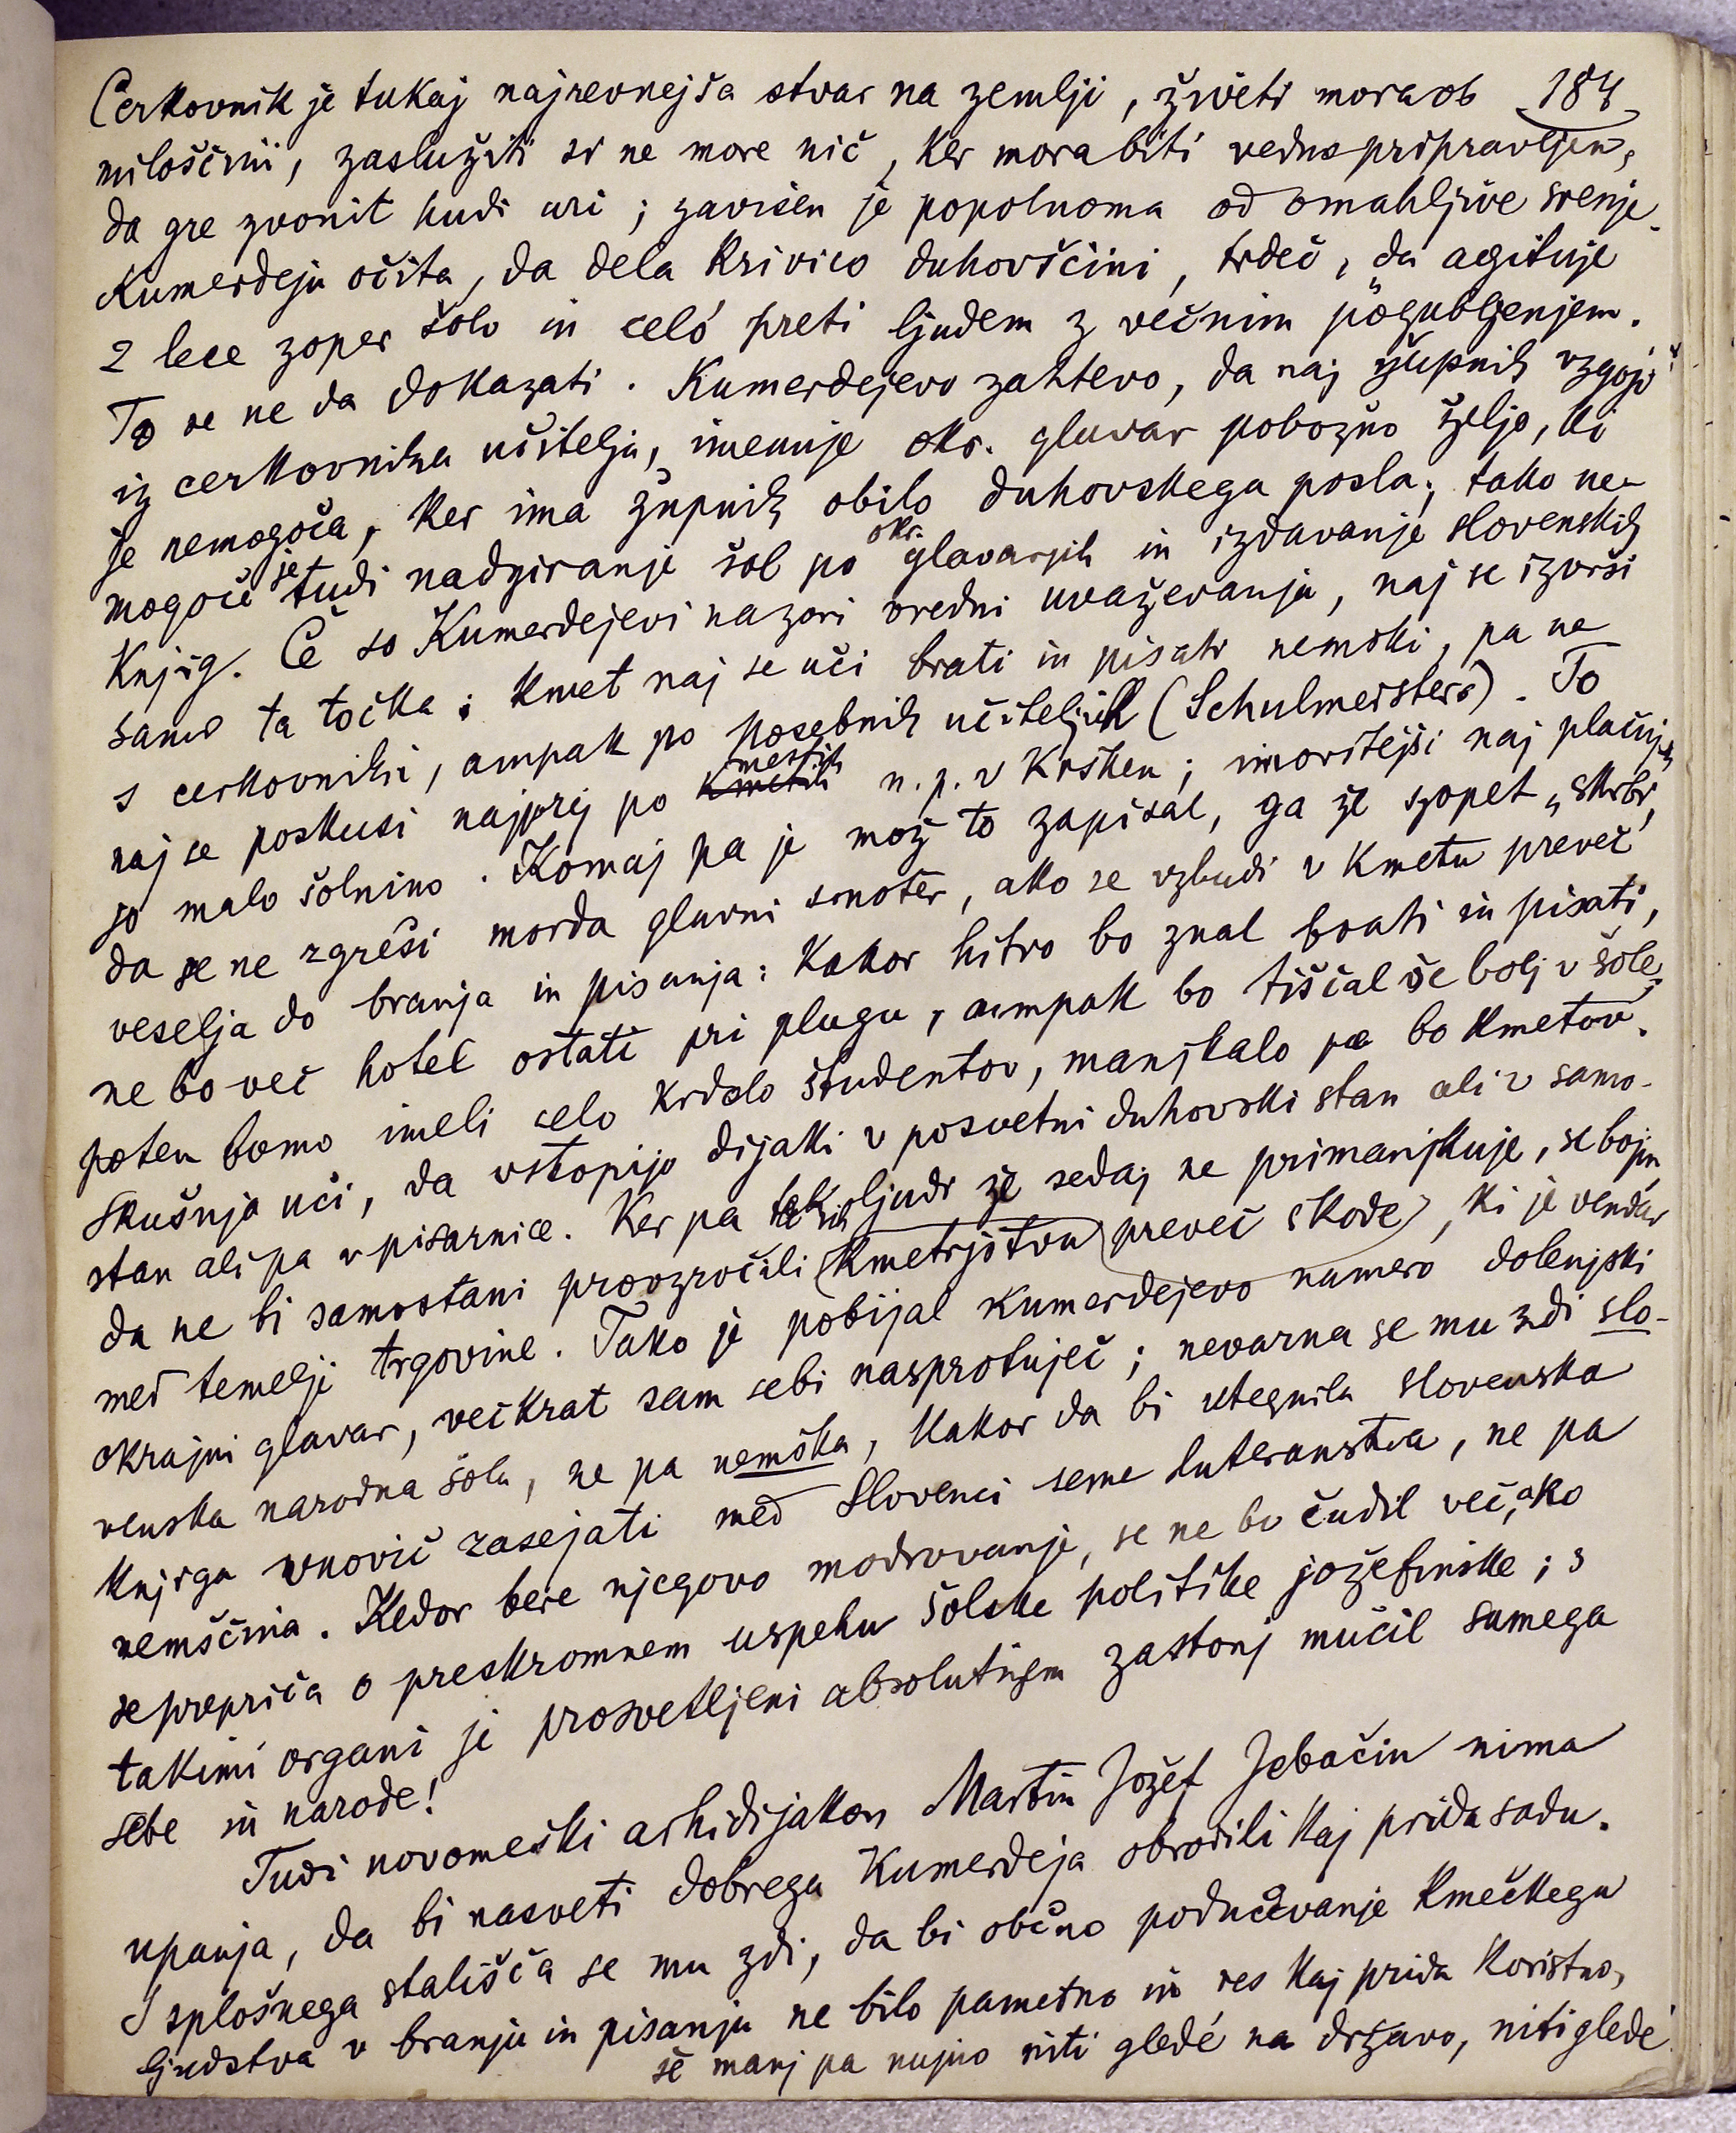 Cerkovnik je tukaj najrevnejša stvar na zemlji, živeti mora ob 184
miloščini, zaslužiti si ne more nič, ker mora biti vedno pripravljen,
da gre zvonit hudi uri; zavisen je popolnoma od omahljive srenje.
Kumerdeju očita, da dela krivico duhovščini, trdeč, da agituje
z lece zoper šolo in celó preti ljudem z večnim pogubljenjem.
To se ne da dokazati. Kumerdejevo zahtevo, da naj župnik vzgoji
iz cerkovnika učitelja, imenuje okr. glavar pobožno željo, ki
je nemogoča, ker ima župnik obilo duhovskega posla; tako ne-
mogoče je tudi nadziranje šol po okr. glavarjih in izdavanje slovenskih
knjig. Če so Kumerdejevi nazori vredni uvaževanja, naj se izvrši
samo ta točka: kmet naj se uči brati in pisati nemški, pa ne
s cerkovniki, ampak po posebnih učiteljih (Schulmeisters). To
naj se poskusi najprej po kmetih mestih n. p. v Krškem; imovitejši naj plačuje-
jo malo šolnino. Komaj pa je mož to zapisal, ga že zopet „skrbi,
da se ne zgreši morda glavni smoter, ako se vzbudi v kmetu preveč
veselja do branja in pisanja: kakor hitro bo znal brati in pisati,
ne bo več hotel ostati pri plugu, ampak bo tiščal še bolj v šole;
potem bomo imeli celo krdelo študentov, manjkalo pa bo kmetov.
Skušnja uči, da vstopijo dijaki v posvetni duhovski stan ali v samo-
stan ali pa v pisarnice. Ker pa takih ljudi že sedaj ne primanjkuje, se bojim,
da ne bi samostani provzročili kmetijstvu preveč škode, ki je vendar
med temelji trgovine. Tako je pobijal Kumerdejevo namero dolenjski
okrajni glavar, večkrat sam sebi nasprotuječ; nevarna se mu zdi slo-
venska narodna šola, ne pa nemška, kakor da bi utegnila slovenska
knjiga vnovič zasejati med Slovenci seme luteranstva, ne pa
nemščina. Kedor bere njegovo modrovanje, se ne bo čudil več, ako
se prepriča o preskromnem uspehu šolske politike jožefinske; s
takimi organi je prosvetljeni absolutizem zastonj mučil samega
sebe in narode!
Tudi novomeški arhidijakon Martin Jožef Jebačin nima
upanja, da bi nasveti dobrega Kumerdeja obrodili kaj prida sadu.
S splošnega stališča se mu zdi, da bi občno podučevanje kmečkega
ljudstva v branju in pisanju ne bilo pametno in res kaj prida koristno,
še manj pa nujno niti gledé na državo, niti gledé